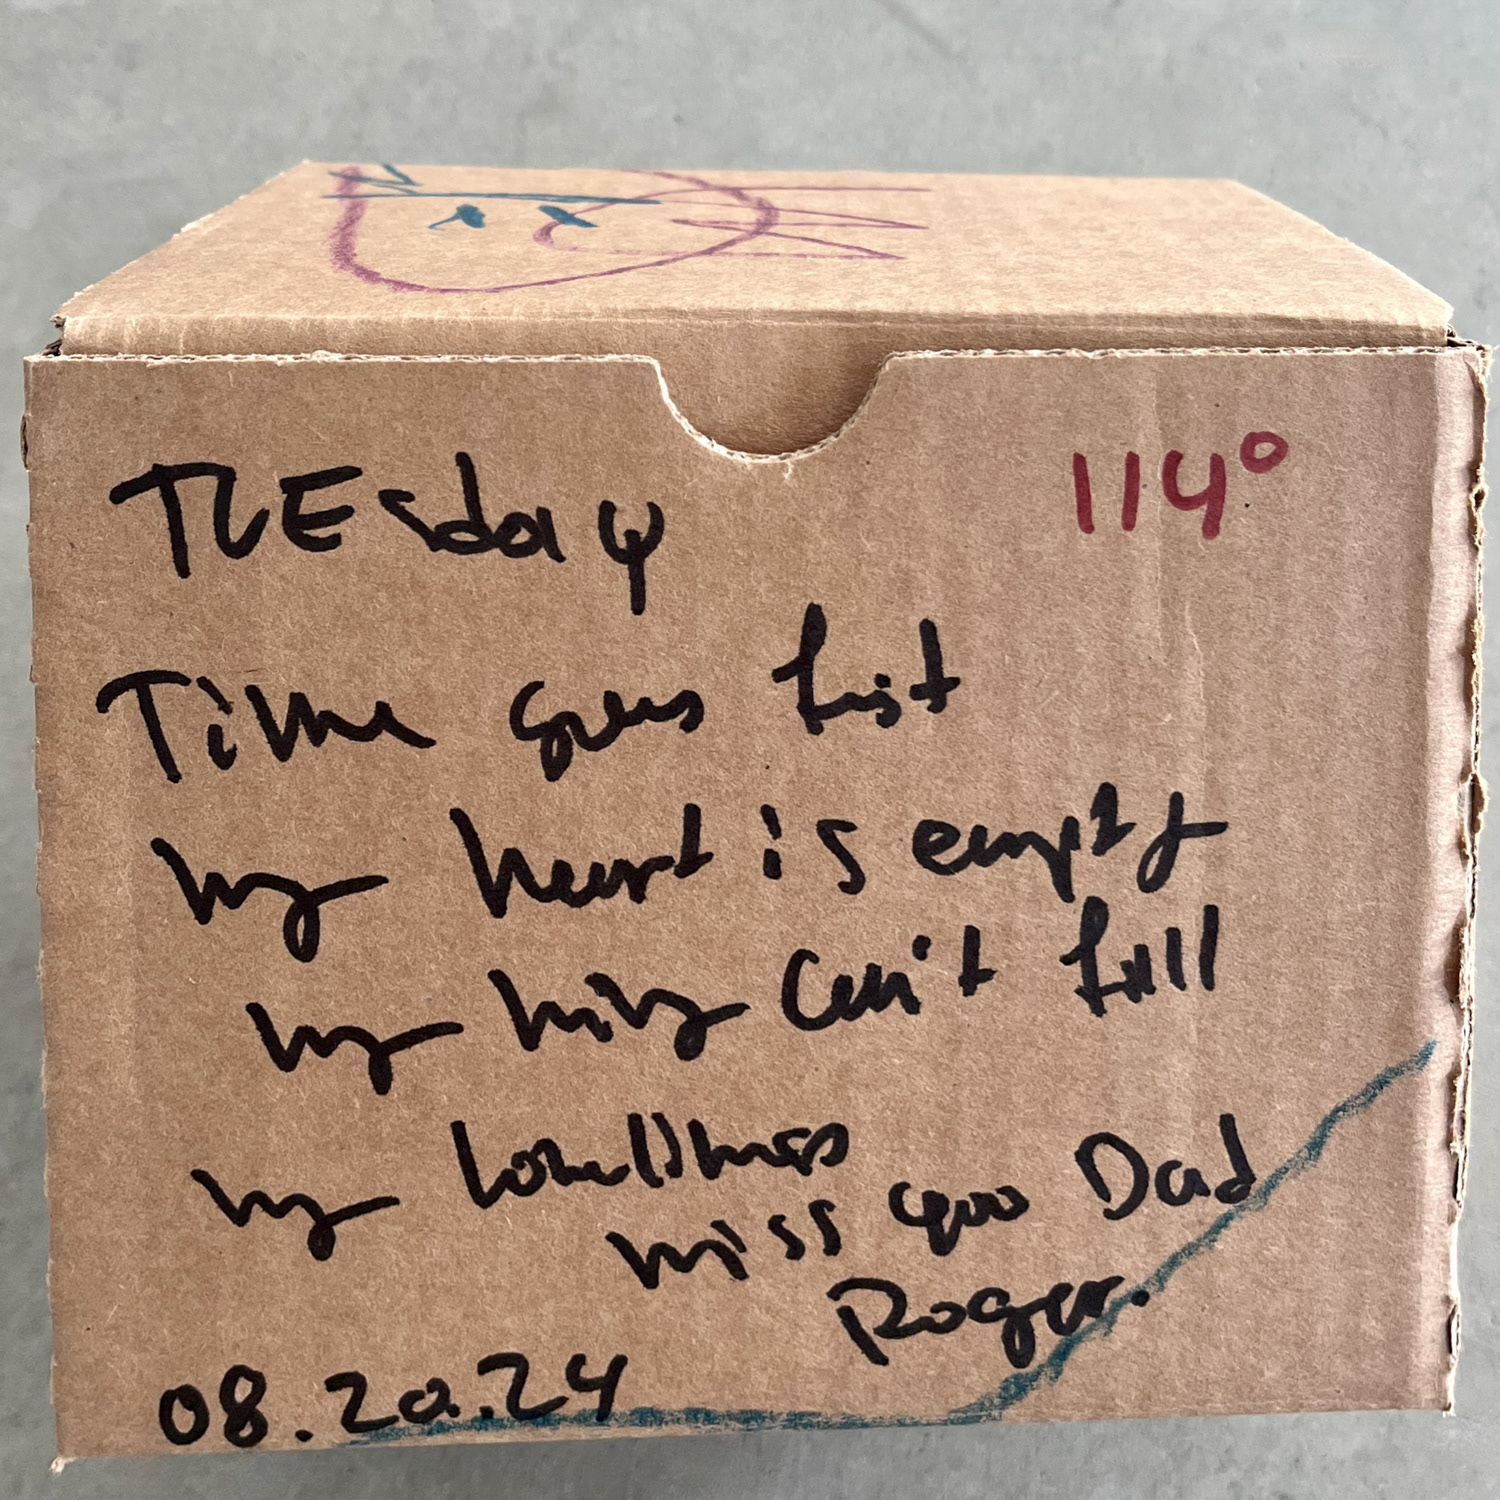 TUEsday 114°
Time goes fast
my heart is empty
my hiby can't full
my lonelliness
miss you Dad
Roger.
08.20.24